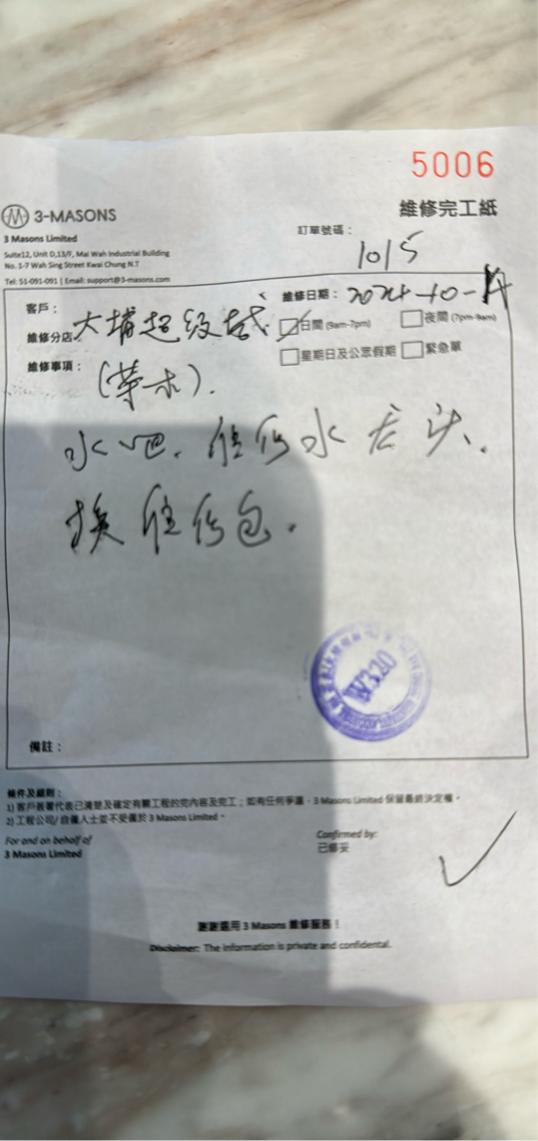 5006
3-MASONS
維修完工紙
3 Masons Limited
訂單號碼：
1015
Suite12, Unit D,13/F, Mai Wah Industrial Building
No. 1-7 Wah Sing Street Kwai Chung N.T
Tel: 51-091-091 | Email: support@3-masons.com
客戶：
維修日期：2024-10-14
維修分店：大埔超级城
日間 (9am-7pm) 夜間 (7pm-9am)
星期日及公眾假期 緊急單
維修事項：
水吧.
水龙头.
换
W320
備註：
條件及細則：
1) 客戶簽署代表已清楚及確定有關工程的完內容及完工；如有任何爭議，3 Masons Limited 保留最終決定權。
2) 工程公司/自僱人士並不受僱於 3 Masons Limited。
For and on behalf of
3 Masons Limited
Confirmed by:
已修妥
謝謝選用 3 Masons 維修服務！
Disclaimer: The information is private and confidental.